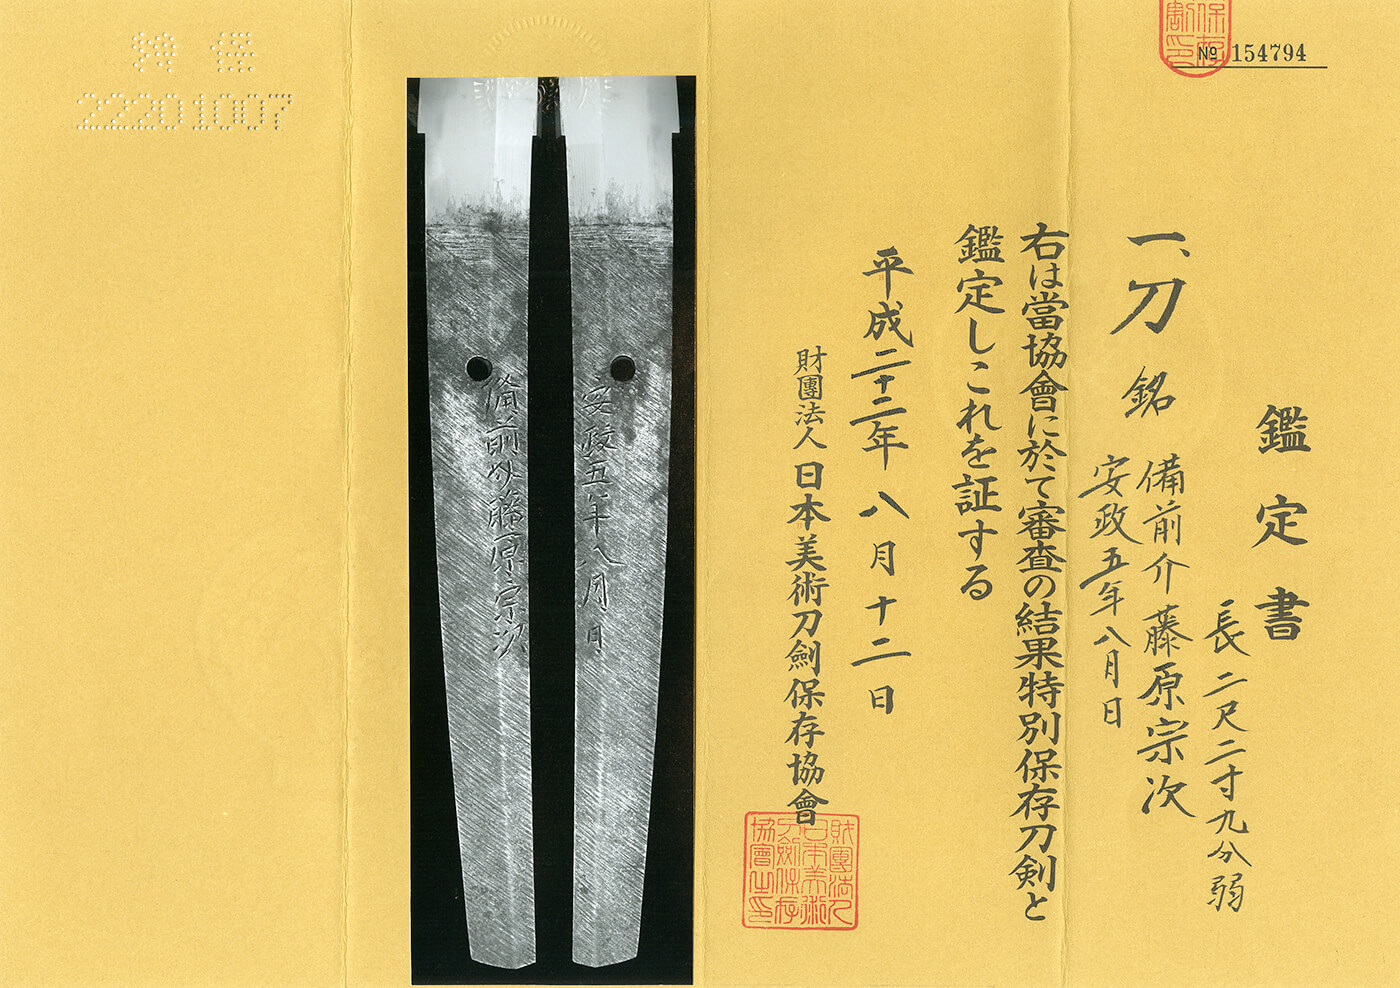 鑑定書
一、刀 銘 備前介藤原宗次
安政五年八月日
長二尺二寸九分弱
右は當協會に於て審査の結果特別保存刀剣と
鑑定しこれを証する
平成二十二年八月十二日
財團法人日本美術刀劍保存協會
財團法人日本美術刀劍保存協會之印
№ 154794
保存
割印
特保
22201007
備前介藤原宗次
安政五年八月日